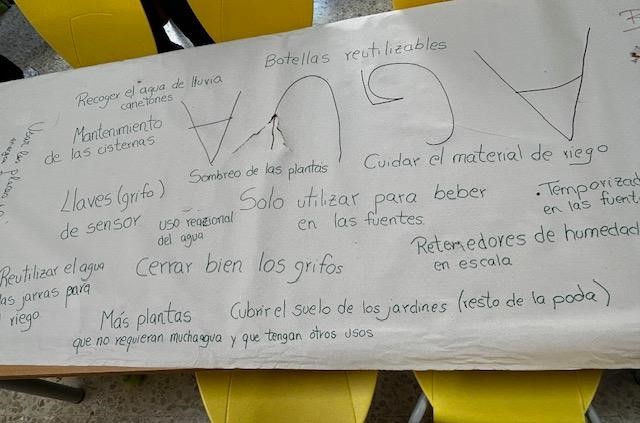 Botellas reutilizables
Recoger el agua de lluvia
canetones
AGUA
Mantenimiento
de las cisternas
Sombreo de las plantas
Cuidar el material de riego
Llaves (grifo)
de sensor
uso
del agua
Solo utilizar para beber
en las fuentes
•Temporizad
en las fuent
Retenedores de humedad
en escala
Cerrar bien los grifos
Reutilizar el agua
as jarras para
riego
Más plantas
que no requieran mucha agua y que tengan otros usos
Cubrir el suelo de los jardines (resto de la poda)